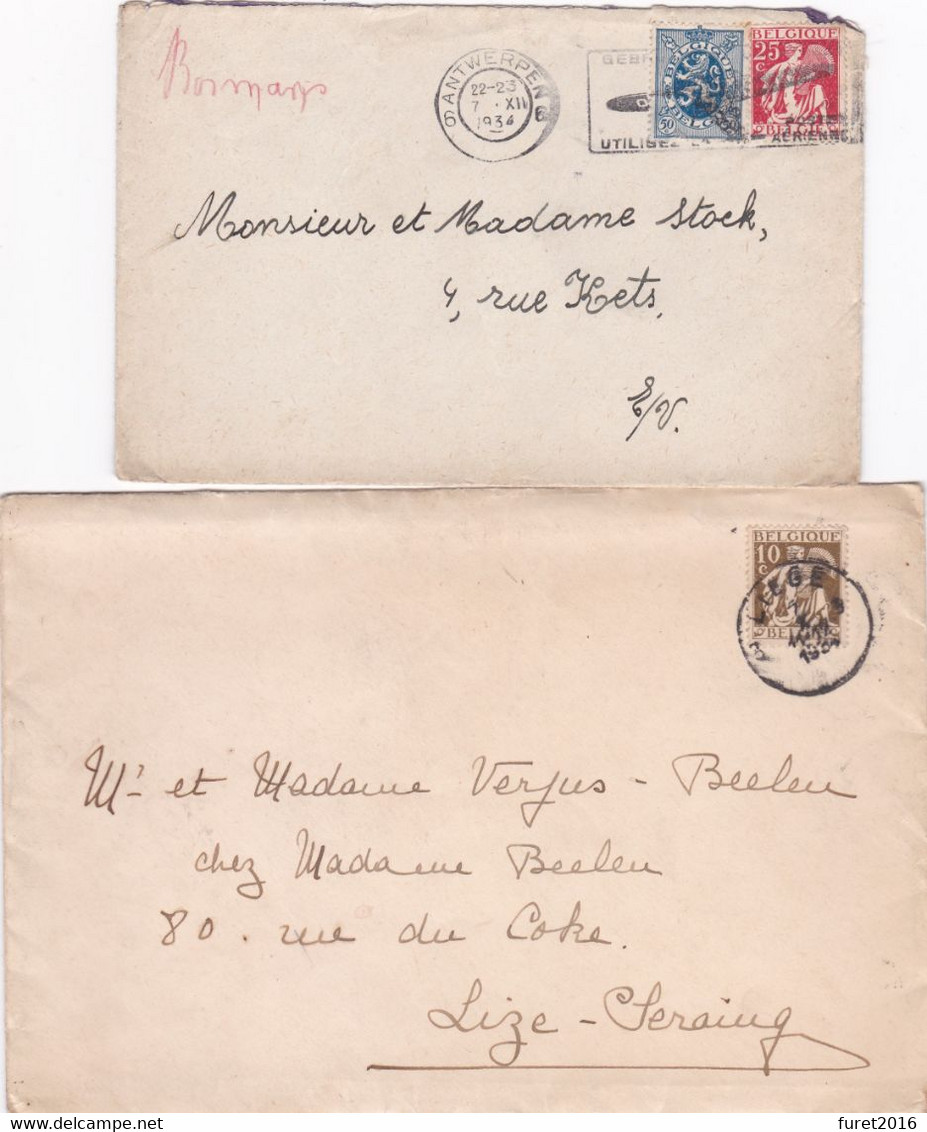 Bormans
6 ANTWERPEN 6
22-23
7 · XII
1934
GEBR
UTILISEZ LA
POSTE
AERIENNE
BELGIQUE
50
BELGIË
BELGIQUE
25 c
BELGIË
Monsieur et Madame Stock,
4, rue Kets,
E/V.
BELGIQUE
10 c
BELGIË
LIEGE
Mr et Madame Verjus - Beelen
chez Madame Beelen
80. rue du Coke.
Lize - Seraing
www.delcampe.net
furet2016